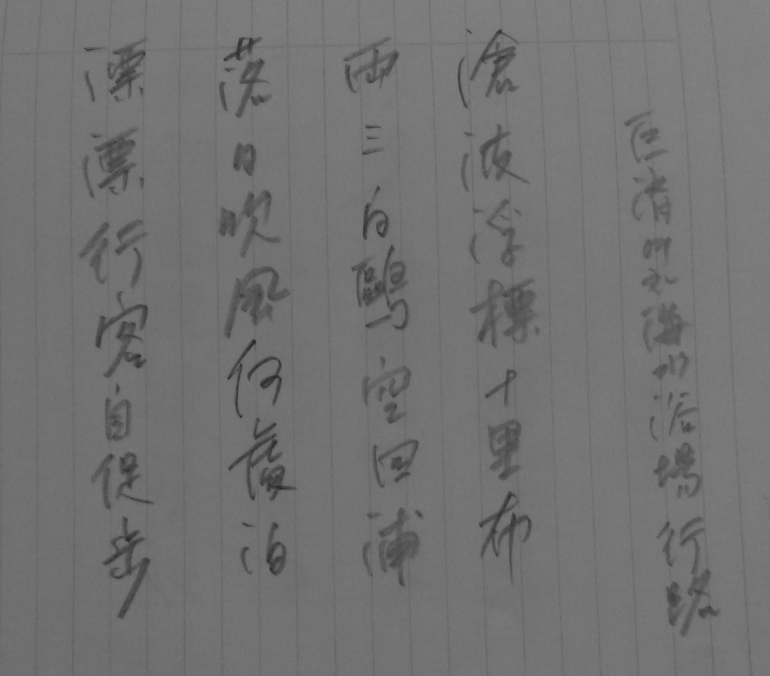 巨濟海水浴場 行路
滄波浮標十里布
兩三白鷗空回浦
落日吹風何處泊
漂漂行客自促步